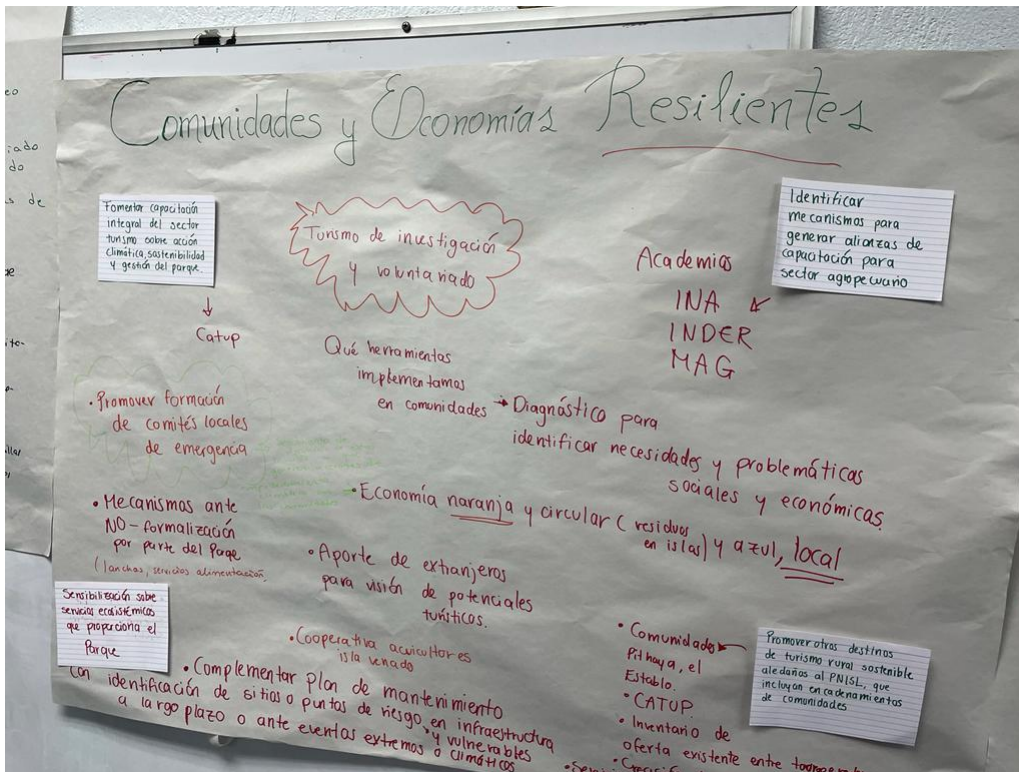 Comunidades y Economías Resilientes
Fomentar capacitación
integral del sector
turismo sobre acción
climática, sostenibilidad
y gestión del parque
Catup
Turismo de investigación
y voluntariado
Academias
INA
INDER
MAG
Identificar
mecanismos para
generar alianzas de
capacitación para
sector agropecuario
Qué herramientas
implementamos
en comunidades → Diagnóstico para
identificar necesidades y problemáticas
sociales y económicas.
• Promover formación
de comités locales
de emergencia
• Economía naranja y circular (residuos
en islas) y azul, local
• Mecanismos ante
NO-formalización
por parte del Parqe
(lanchas, servicios alimentación.
• Aporte de extranjeros
para visión de potenciales
turísticos.
Sensibilización sobre
servicios ecosistémicos
que proporciona el
Parque
• Cooperativa acuicultores
isla venado
• Complementar plan de mantenimiento
con identificación de sitios o puntos de riesgo en infraestructura
y vulnerables
a largo plazo o ante eventos extremos o climáticos
• Comunidades
Pithaya, el
Establo.
• CATUP
• Inventario de
oferta existente entre
Promover otros destinos
de turismo rural sostenible
aledaños al PNISL, que
incluyan encadenamientos
de comunidades